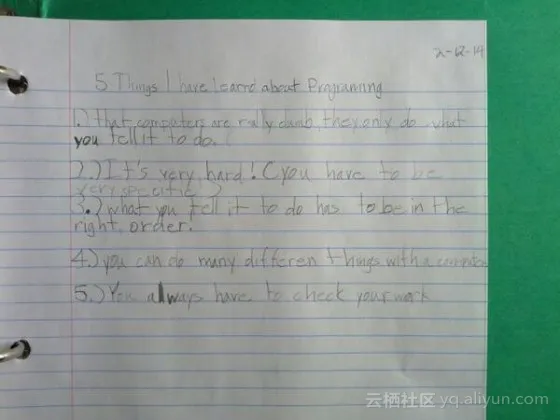 2-12-14
5 Things I have learnd about Programing
1.) that computers are really dumb, they only do what
you tell it to do.
2.) It's very hard! (you have to be
very specific)
3.) what you tell it to do has to be in the
right order.
4.) you can do many differen things with a computer
5.) You always have to check your work
云栖社区 yq.aliyun.com